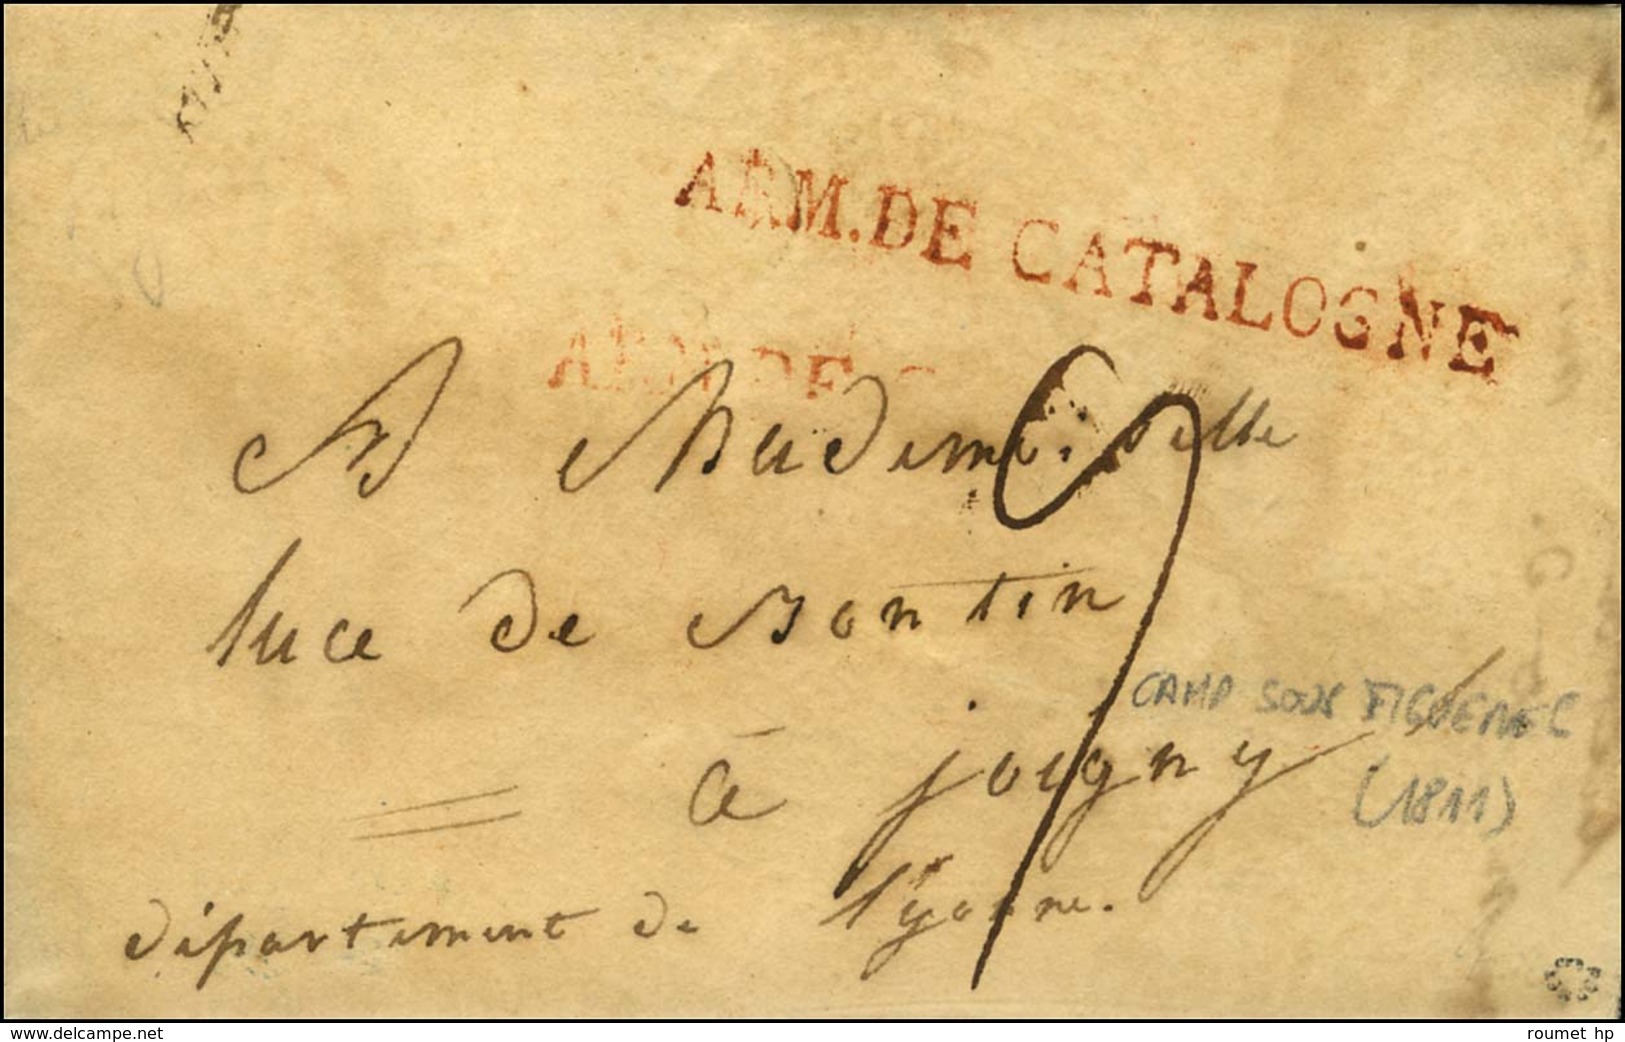 ARM.DE CATALOGNE
ARM.DE C
A Mademoiselle
luce de Bontin
CAMP SOUS FIGUERES
à joigny
(1811)
département de l'yonne.
www.delcampe.net
roumet hp